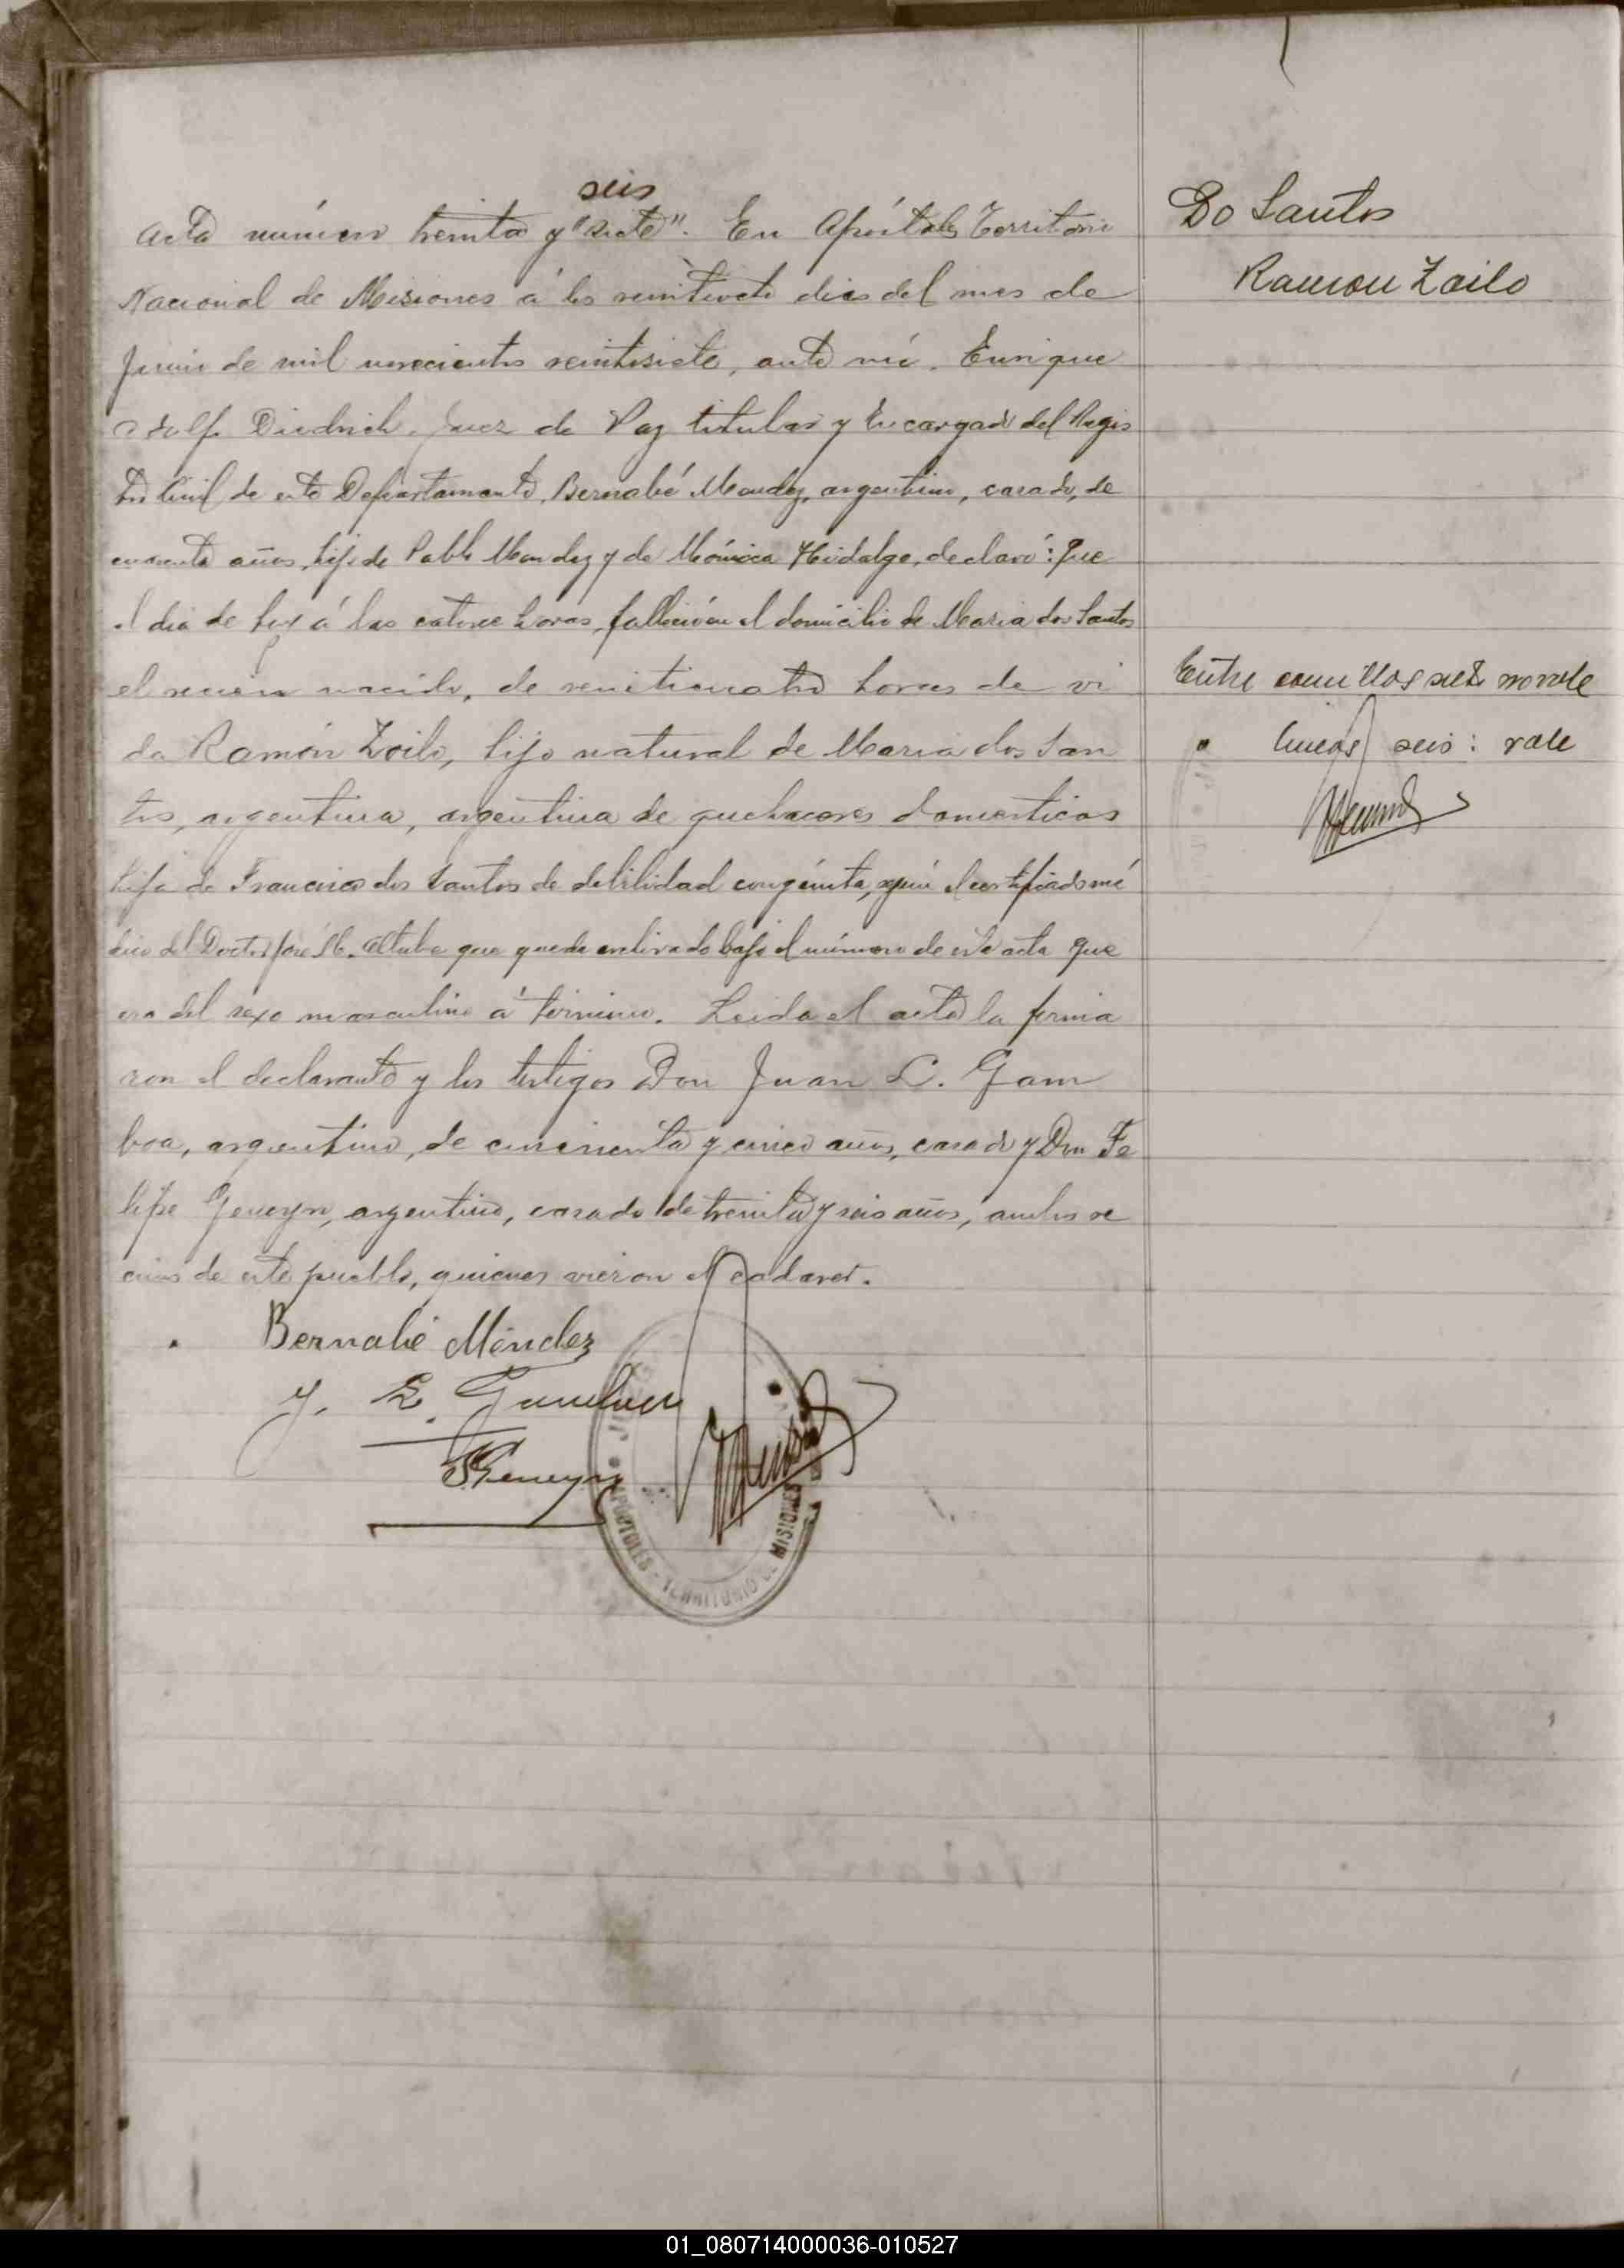 seis
Acta número treinta y "siete". En Apóstoles Territorio
Nacional de Misiones á los veintisiete dias del mes de
Junio de mil novecientos veintisiete, ante mí, Enrique
Adolfo Diedrich, Juez de Paz titular y Encargado del Regis
tro Civil de este Departamento, Bernabé Mendez, argentino, casado, de
años, hijo de Pablo Mendez y de Mónica Hidalgo, declaró: Que
el dia de hoy á las catorce horas, falleció en el domicilio de Maria dos Santos
el recien nacido, de veinticuatro horas de vi
da Ramón Zoilo, hijo natural de Maria dos San
tos, argentina, argentina de quehaceres domesticos
hija de Francisco dos Santos de debilidad congénita, según el certificado mé
dico del Doctor José M. Altube que queda archivado bajo el número de esta acta que
era del sexo masculino á término. Leida el acta la firma
ron el declarante y los testigos Don Juan L. Gam
boa, argentino, de cincuenta y cinco años, casado y Don Fe
lipe Geneyro, argentino, casado de treinta y seis años, ambos ve
cinos de este pueblo, quienes vieron el cadaver.
Bernabé Méndez
J. L. Gamboa
F Geneyro
APÓSTOLES - TERRITORIO DE MISIONES
Do Santos
Ramon Zoilo
Entre comillas siete no vale
" lineas seis: vale
01_080714000036-010527